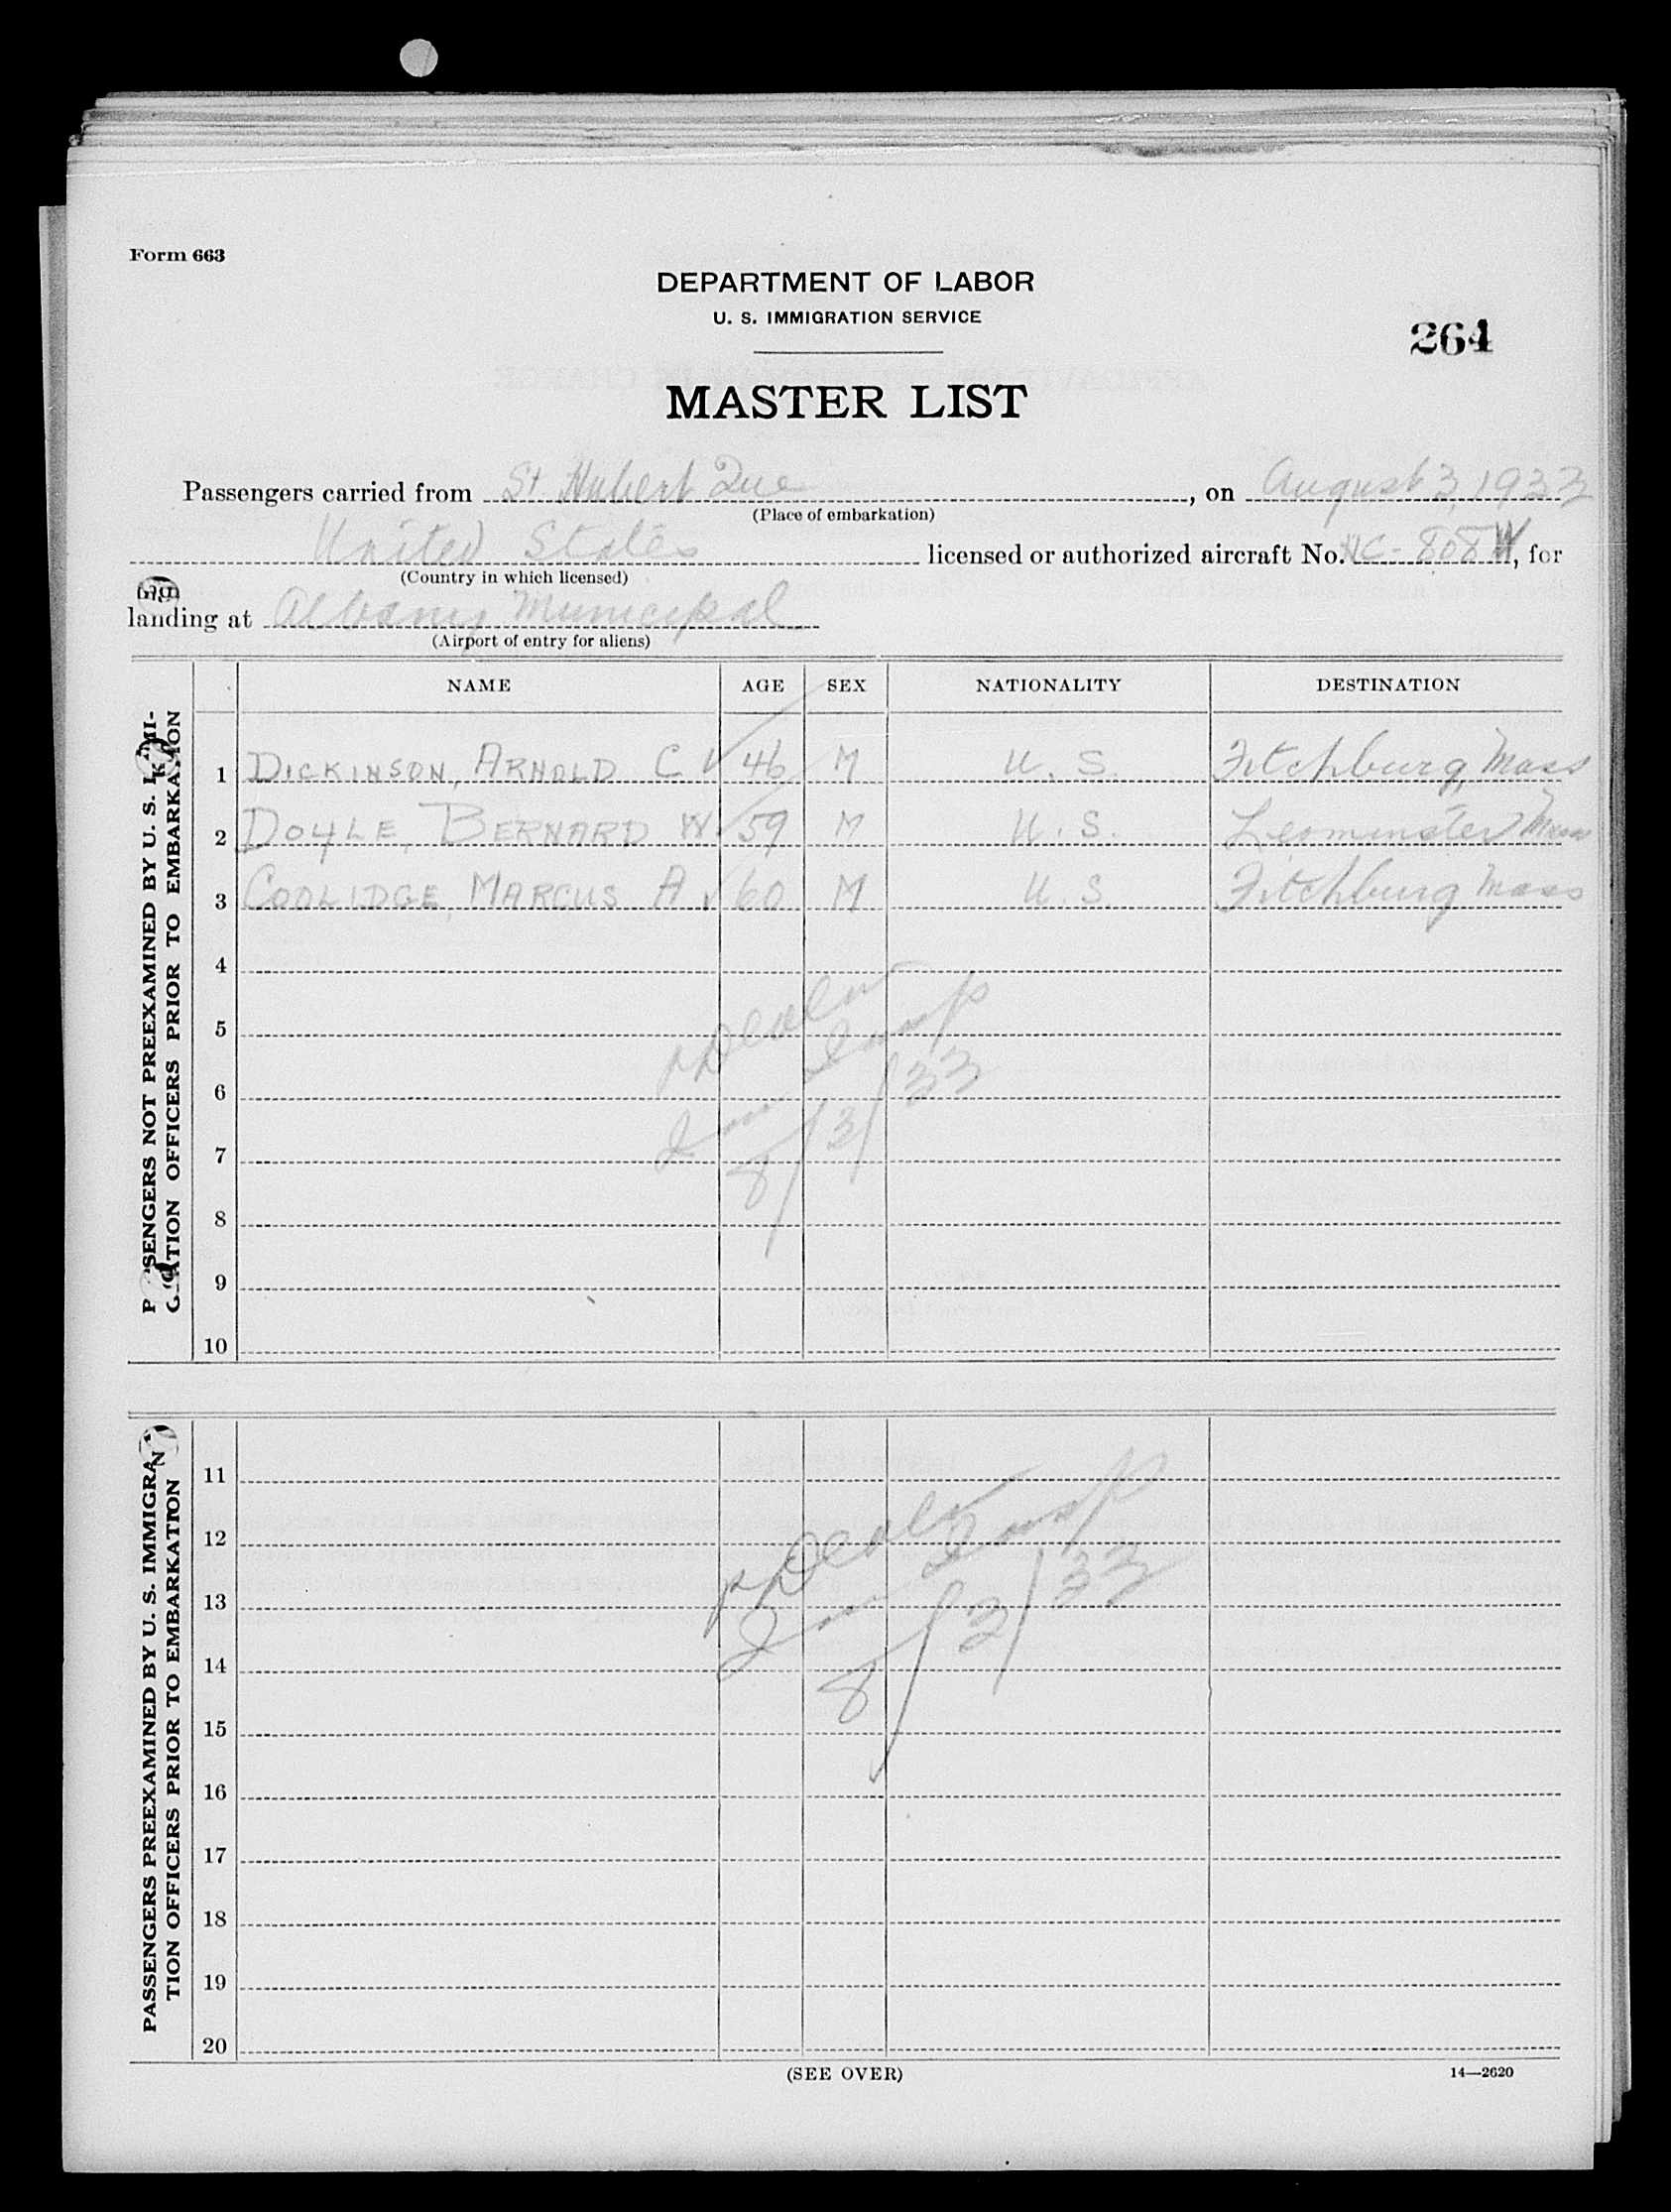 Form 663
DEPARTMENT OF LABOR
U. S. IMMIGRATION SERVICE
264
MASTER LIST
Passengers carried from St Hubert Que, on August 3, 1933
(Place of embarkation)
United States licensed or authorized aircraft No. NC-808W, for
(Country in which licensed)
landing at Albany Municipal
(Airport of entry for aliens)
NAME AGE SEX NATIONALITY DESTINATION
PASSENGERS NOT PREEXAMINED BY U. S. IMMI-
GRATION OFFICERS PRIOR TO EMBARKATION
1 DICKINSON, ARNOLD C √ 46 M U. S. Fitchburg, Mass
2 DOYLE, BERNARD W √ 59 M U. S. Leominster Mass
3 COOLIDGE, MARCUS A √ 60 M U. S. Fitchburg Mass
4
5
6
7
8
9
10
Insp
8/3/33
PASSENGERS PREEXAMINED BY U. S. IMMIGRA-
TION OFFICERS PRIOR TO EMBARKATION
11
12
13
14
15
16
17
18
19
20
Insp
8/3/33
(SEE OVER)
14—2620